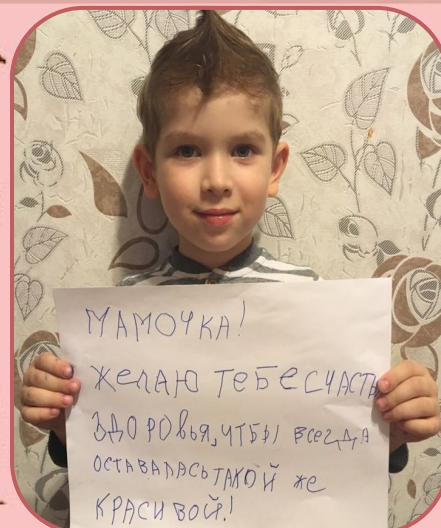 МАМОЧКА!
ЖЕЛАЮ ТЕБЕ СЧАСТЬ
ЗДОРОВЬЯ, ЧТБЫ ВСЕГДА
ОСТАВАЛАСЬ ТАКОЙ ЖЕ
КРАСИВОЙ!